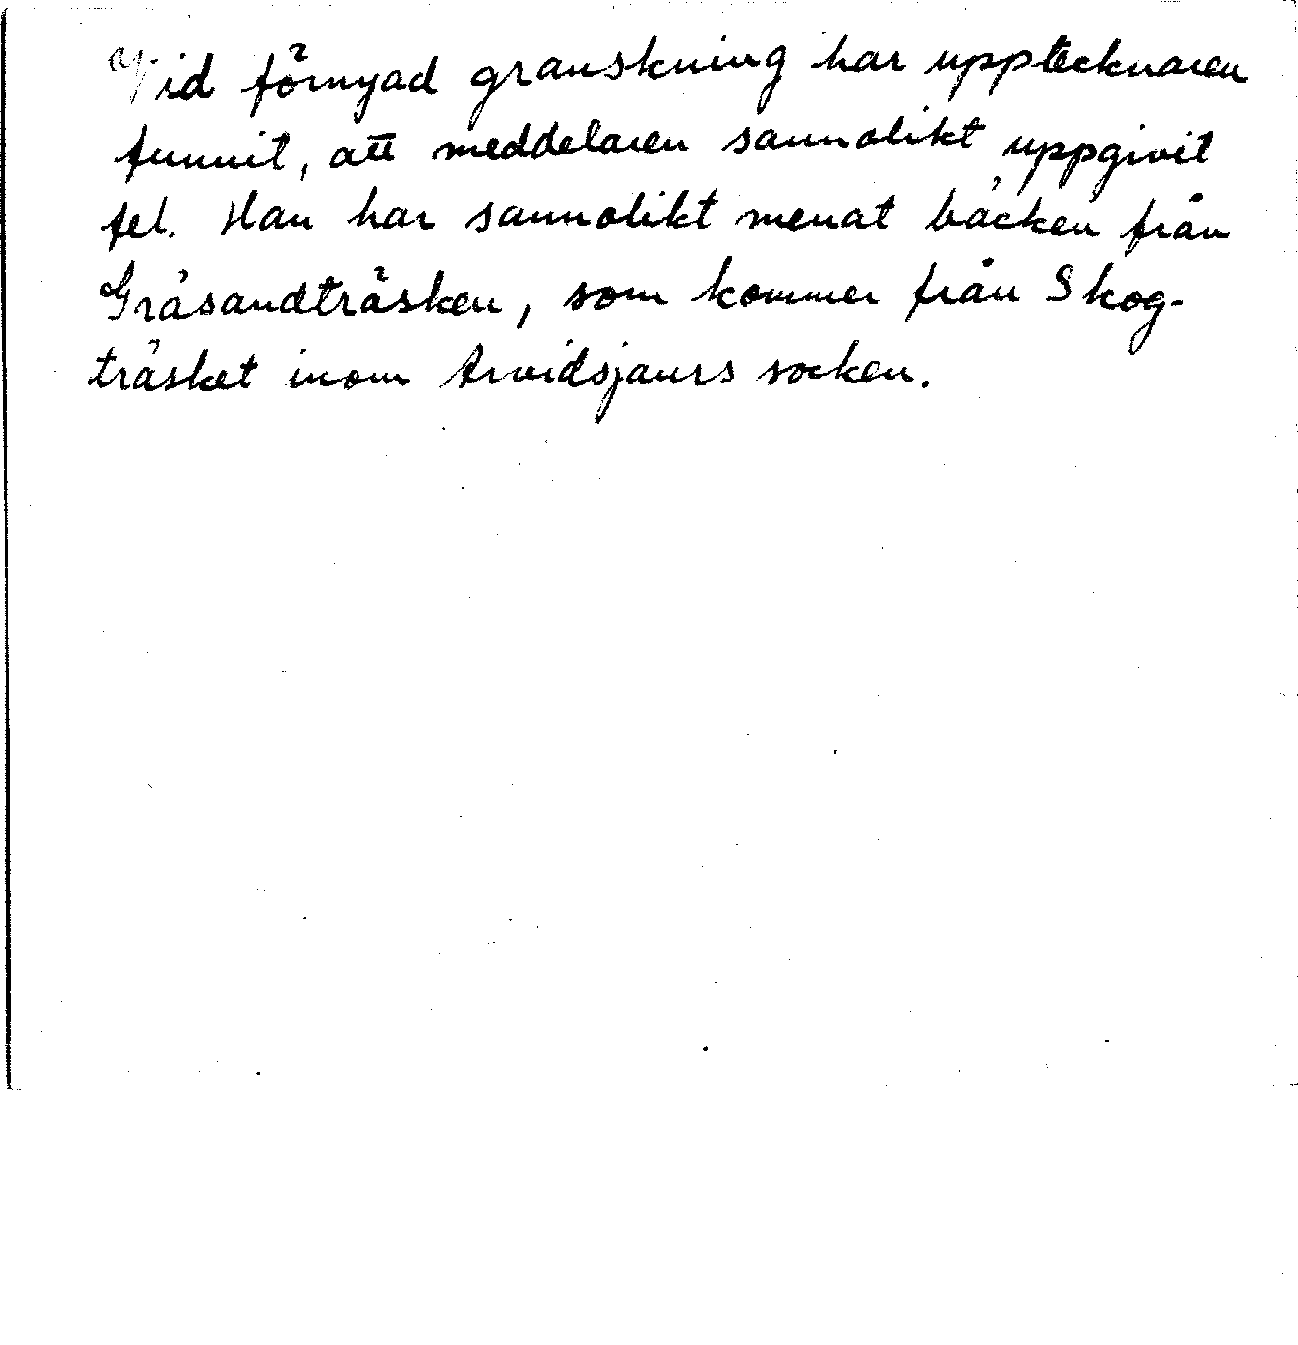 Vid förnyad granskning har upptecknaren
funnit, att meddelaren sannolikt uppgivit
fel. Han har sannolikt menat bäcken från
Gråsandträsken, som kommer från Skog-
träsket inom Arvidsjaurs socken.